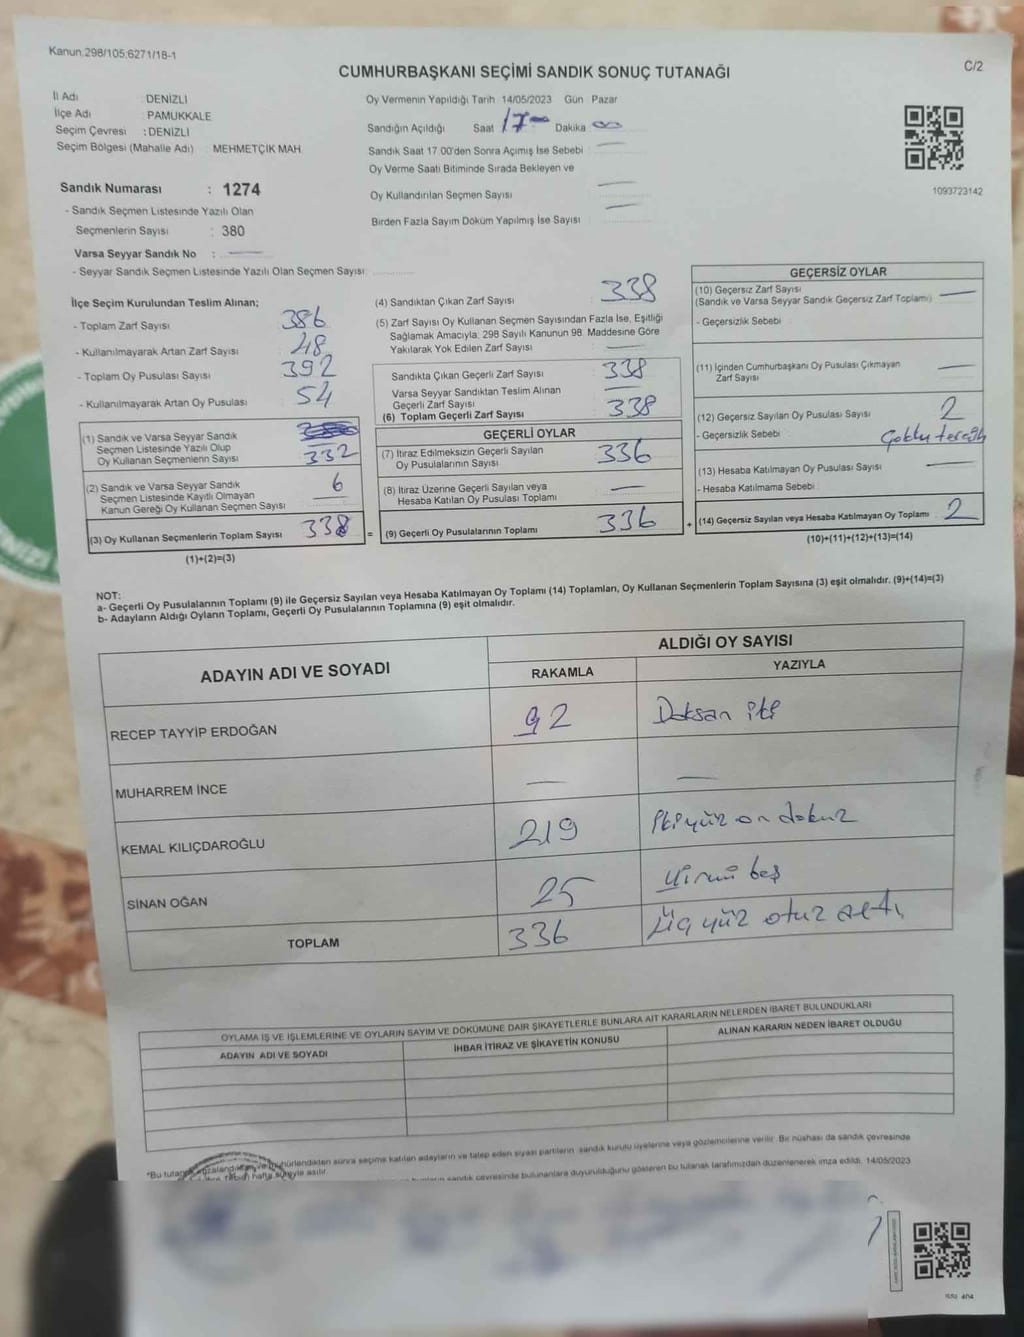 Kanun:298/105;6271/18-1
C/2
CUMHURBAŞKANI SEÇİMİ SANDIK SONUÇ TUTANAĞI
İl Adı : DENİZLİ
İlçe Adı : PAMUKKALE
Seçim Çevresi : DENİZLİ
Seçim Bölgesi (Mahalle Adı) : MEHMETÇİK MAH.
Sandık Numarası : 1274
- Sandık Seçmen Listesinde Yazılı Olan
Seçmenlerin Sayısı : 380
Varsa Seyyar Sandık No :
- Seyyar Sandık Seçmen Listesinde Yazılı Olan Seçmen Sayısı
Oy Vermenin Yapıldığı Tarih 14/05/2023 Gün Pazar
Sandığın Açıldığı Saat 17 Dakika 00
Sandık Saat 17.00'den Sonra Açılmış İse Sebebi
Oy Verme Saati Bitiminde Sırada Bekleyen ve
Oy Kullandırılan Seçmen Sayısı
Birden Fazla Sayım Döküm Yapılmış İse Sayısı
1093723142
İlçe Seçim Kurulundan Teslim Alınan;
- Toplam Zarf Sayısı 386
- Kullanılmayarak Artan Zarf Sayısı 48
- Toplam Oy Pusulası Sayısı 392
- Kullanılmayarak Artan Oy Pusulası 54
(1) Sandık ve Varsa Seyyar Sandık
Seçmen Listesinde Yazılı Olup
Oy Kullanan Seçmenlerin Sayısı 332
(2) Sandık ve Varsa Seyyar Sandık
Seçmen Listesinde Kayıtlı Olmayan
Kanun Gereği Oy Kullanan Seçmen Sayısı 6
(3) Oy Kullanan Seçmenlerin Toplam Sayısı 338
(1)+(2)=(3)
(4) Sandıktan Çıkan Zarf Sayısı 338
(5) Zarf Sayısı Oy Kullanan Seçmen Sayısından Fazla İse, Eşitliği
Sağlamak Amacıyla, 298 Sayılı Kanunun 98. Maddesine Göre
Yakılarak Yok Edilen Zarf Sayısı
Sandıkta Çıkan Geçerli Zarf Sayısı 338
Varsa Seyyar Sandıktan Teslim Alınan
Geçerli Zarf Sayısı
(6) Toplam Geçerli Zarf Sayısı 338
GEÇERLİ OYLAR
(7) İtiraz Edilmeksizin Geçerli Sayılan
Oy Pusulalarının Sayısı 336
(8) İtiraz Üzerine Geçerli Sayılan veya
Hesaba Katılan Oy Pusulası Toplamı
= (9) Geçerli Oy Pusulalarının Toplamı 336
GEÇERSİZ OYLAR
(10) Geçersiz Zarf Sayısı
(Sandık ve Varsa Seyyar Sandık Geçersiz Zarf Toplamı)
- Geçersizlik Sebebi
(11) İçinden Cumhurbaşkanı Oy Pusulası Çıkmayan
Zarf Sayısı
(12) Geçersiz Sayılan Oy Pusulası Sayısı 2
- Geçersizlik Sebebi Çoklu tercih
(13) Hesaba Katılmayan Oy Pusulası Sayısı
- Hesaba Katılmama Sebebi
+ (14) Geçersiz Sayılan veya Hesaba Katılmayan Oy Toplamı 2
(10)+(11)+(12)+(13)=(14)
NOT:
a- Geçerli Oy Pusulalarının Toplamı (9) ile Geçersiz Sayılan veya Hesaba Katılmayan Oy Toplamı (14) Toplamları, Oy Kullanan Seçmenlerin Toplam Sayısına (3) eşit olmalıdır. (9)+(14)=(3)
b- Adayların Aldığı Oyların Toplamı, Geçerli Oy Pusulalarının Toplamına (9) eşit olmalıdır.
ADAYIN ADI VE SOYADI
ALDIĞI OY SAYISI
RAKAMLA YAZIYLA
RECEP TAYYİP ERDOĞAN 92 Doksan iki
MUHARREM İNCE
KEMAL KILIÇDAROĞLU 219 İkiyüz on dokuz
SİNAN OĞAN 25 yirmi beş
TOPLAM 336 Üç yüz otuz altı
OYLAMA İŞ VE İŞLEMLERİNE VE OYLARIN SAYIM VE DÖKÜMÜNE DAİR ŞİKAYETLERLE BUNLARA AİT KARARLARIN NELERDEN İBARET BULUNDUKLARI
ADAYIN ADI VE SOYADI
İHBAR İTİRAZ VE ŞİKAYETİN KONUSU
ALINAN KARARIN NEDEN İBARET OLDUĞU
*Bu tutanak imzalandıktan ve mühürlendikten sonra seçime katılan adayların ve talep eden siyasi partilerin sandık kurulu üyelerine veya gözlemcilerine verilir. Bir nüshası da sandık çevresinde
hafta süreyle asılır.
sandık çevresinde bulunanlara duyurulduğunu gösteren bu tutanak tarafımızdan düzenlenerek imza edildi. 14/05/2023